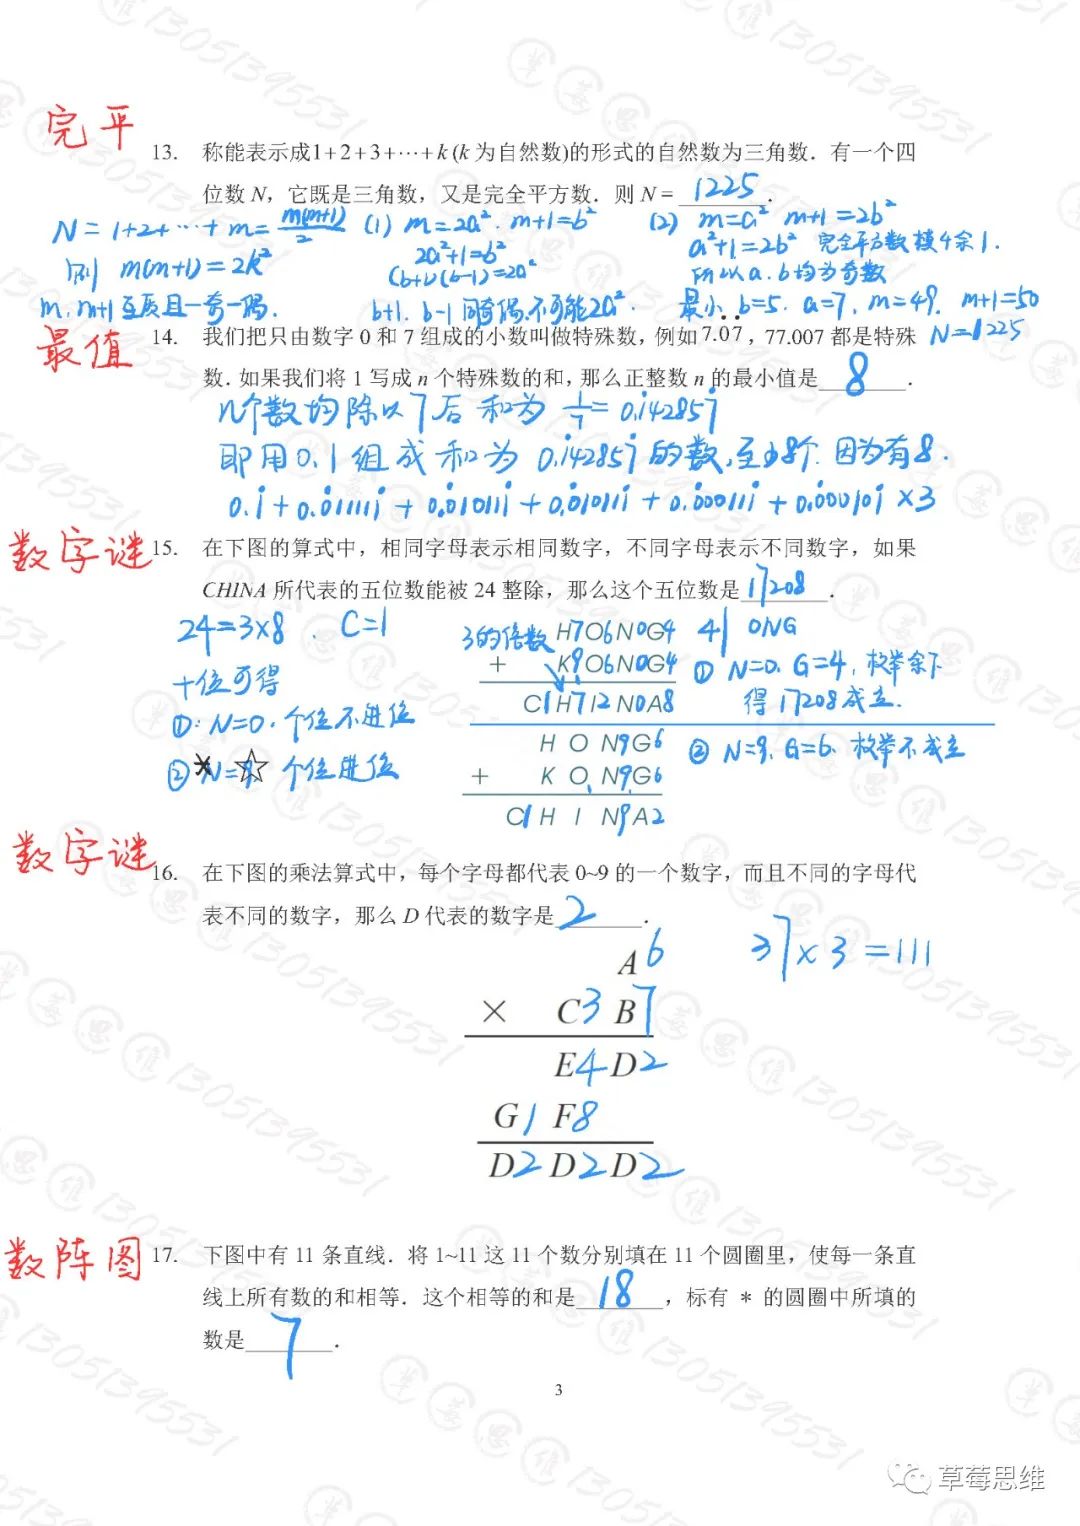 完平
13. 称能表示成1+2+3+⋯+k (k 为自然数)的形式的自然数为三角数．有一个四
位数 N，它既是三角数，又是完全平方数．则 N = 1225 ．
N = 1+2+⋯+m = m(m+1)/2 (1) m=2a² . m+1=b² (2) m=a² m+1=2b²
则 m(m+1)=2k² 2a²+1=b² a²+1=2b² 完全平方数模4余1.
(b+1)(b-1)=2a² 所以a.b均为奇数
m. m+1互质且一奇一偶. b+1. b-1同奇偶,不可能2a². 最小 b=5. a=7, m=49. m+1=50
N=1225
最值
14. 我们把只由数字 0 和 7 组成的小数叫做特殊数，例如7.0̇7̇，77.007 都是特殊
数．如果我们将 1 写成 n 个特殊数的和，那么正整数 n 的最小值是 8 ．
n个数均除以7后和为 1/7 = 0.1̇42857̇
即用0.1组成和为 0.1̇42857̇的数,至少8个. 因为有8.
0.1̇ + 0.0̇11111̇ + 0.0̇10111̇ + 0.0̇10111̇ + 0.0̇00111̇ + 0.0̇00101̇ ×3
数字谜
15. 在下图的算式中，相同字母表示相同数字，不同字母表示不同数字，如果
CHINA 所代表的五位数能被 24 整除，那么这个五位数是 17208 ．
24=3×8 . C=1
3的倍数 H7O6N0G4 4| ONG
+ K9O6N0G4 ① N=0. G=4, 枚举余下
十位可得
C1H7I2N0A8 得17208成立.
①: N=0. 个位不进位
H O N9G6 ② N=9. G=6. 枚举不成立
② N=9. 个位进位
+ K O N9G6
C1 H I N9A2
数字谜
16. 在下图的乘法算式中，每个字母都代表 0~9 的一个数字，而且不同的字母代
表不同的数字，那么 D 代表的数字是 2 ．
A6 37×3=111
× C3 B7
E4D2
G1 F8
D2D2D2
数阵图
17. 下图中有 11 条直线．将 1~11 这 11 个数分别填在 11 个圆圈里，使每一条直
线上所有数的和相等．这个相等的和是 18 ，标有 * 的圆圈中所填的
数是 7 ．
3
草莓思维
草莓思维13051395531